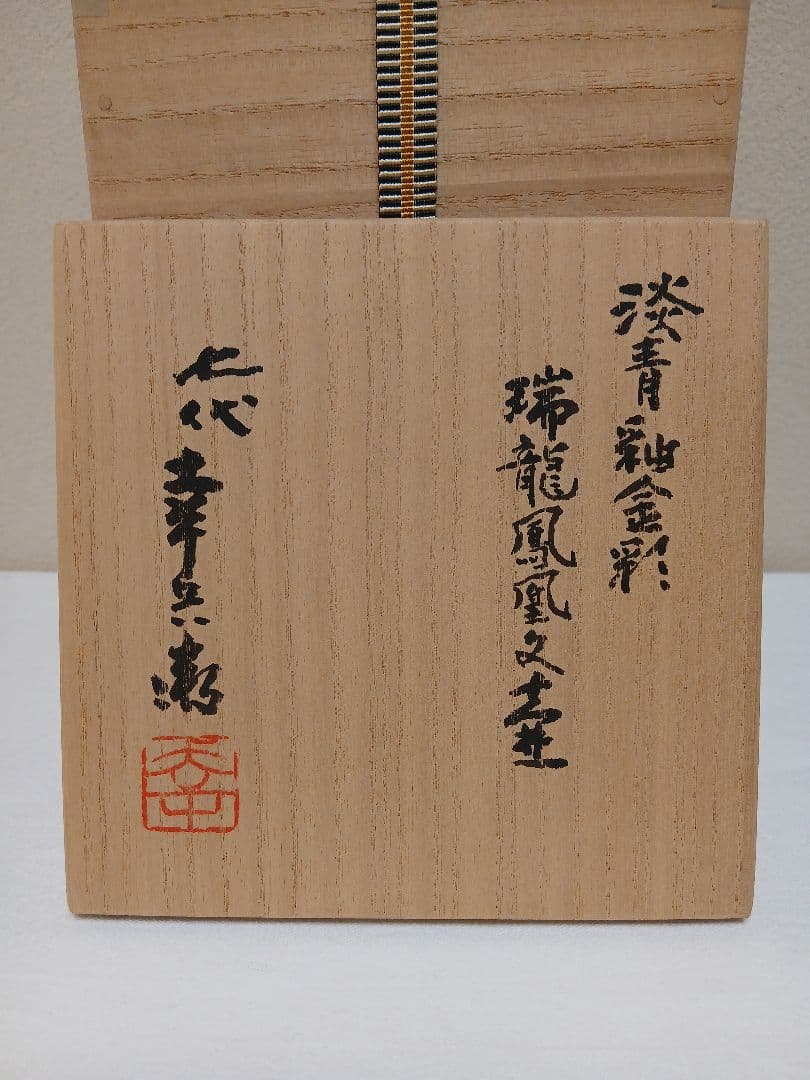 淡青釉金彩
瑞龍鳳凰文壷
七代 幸兵衛